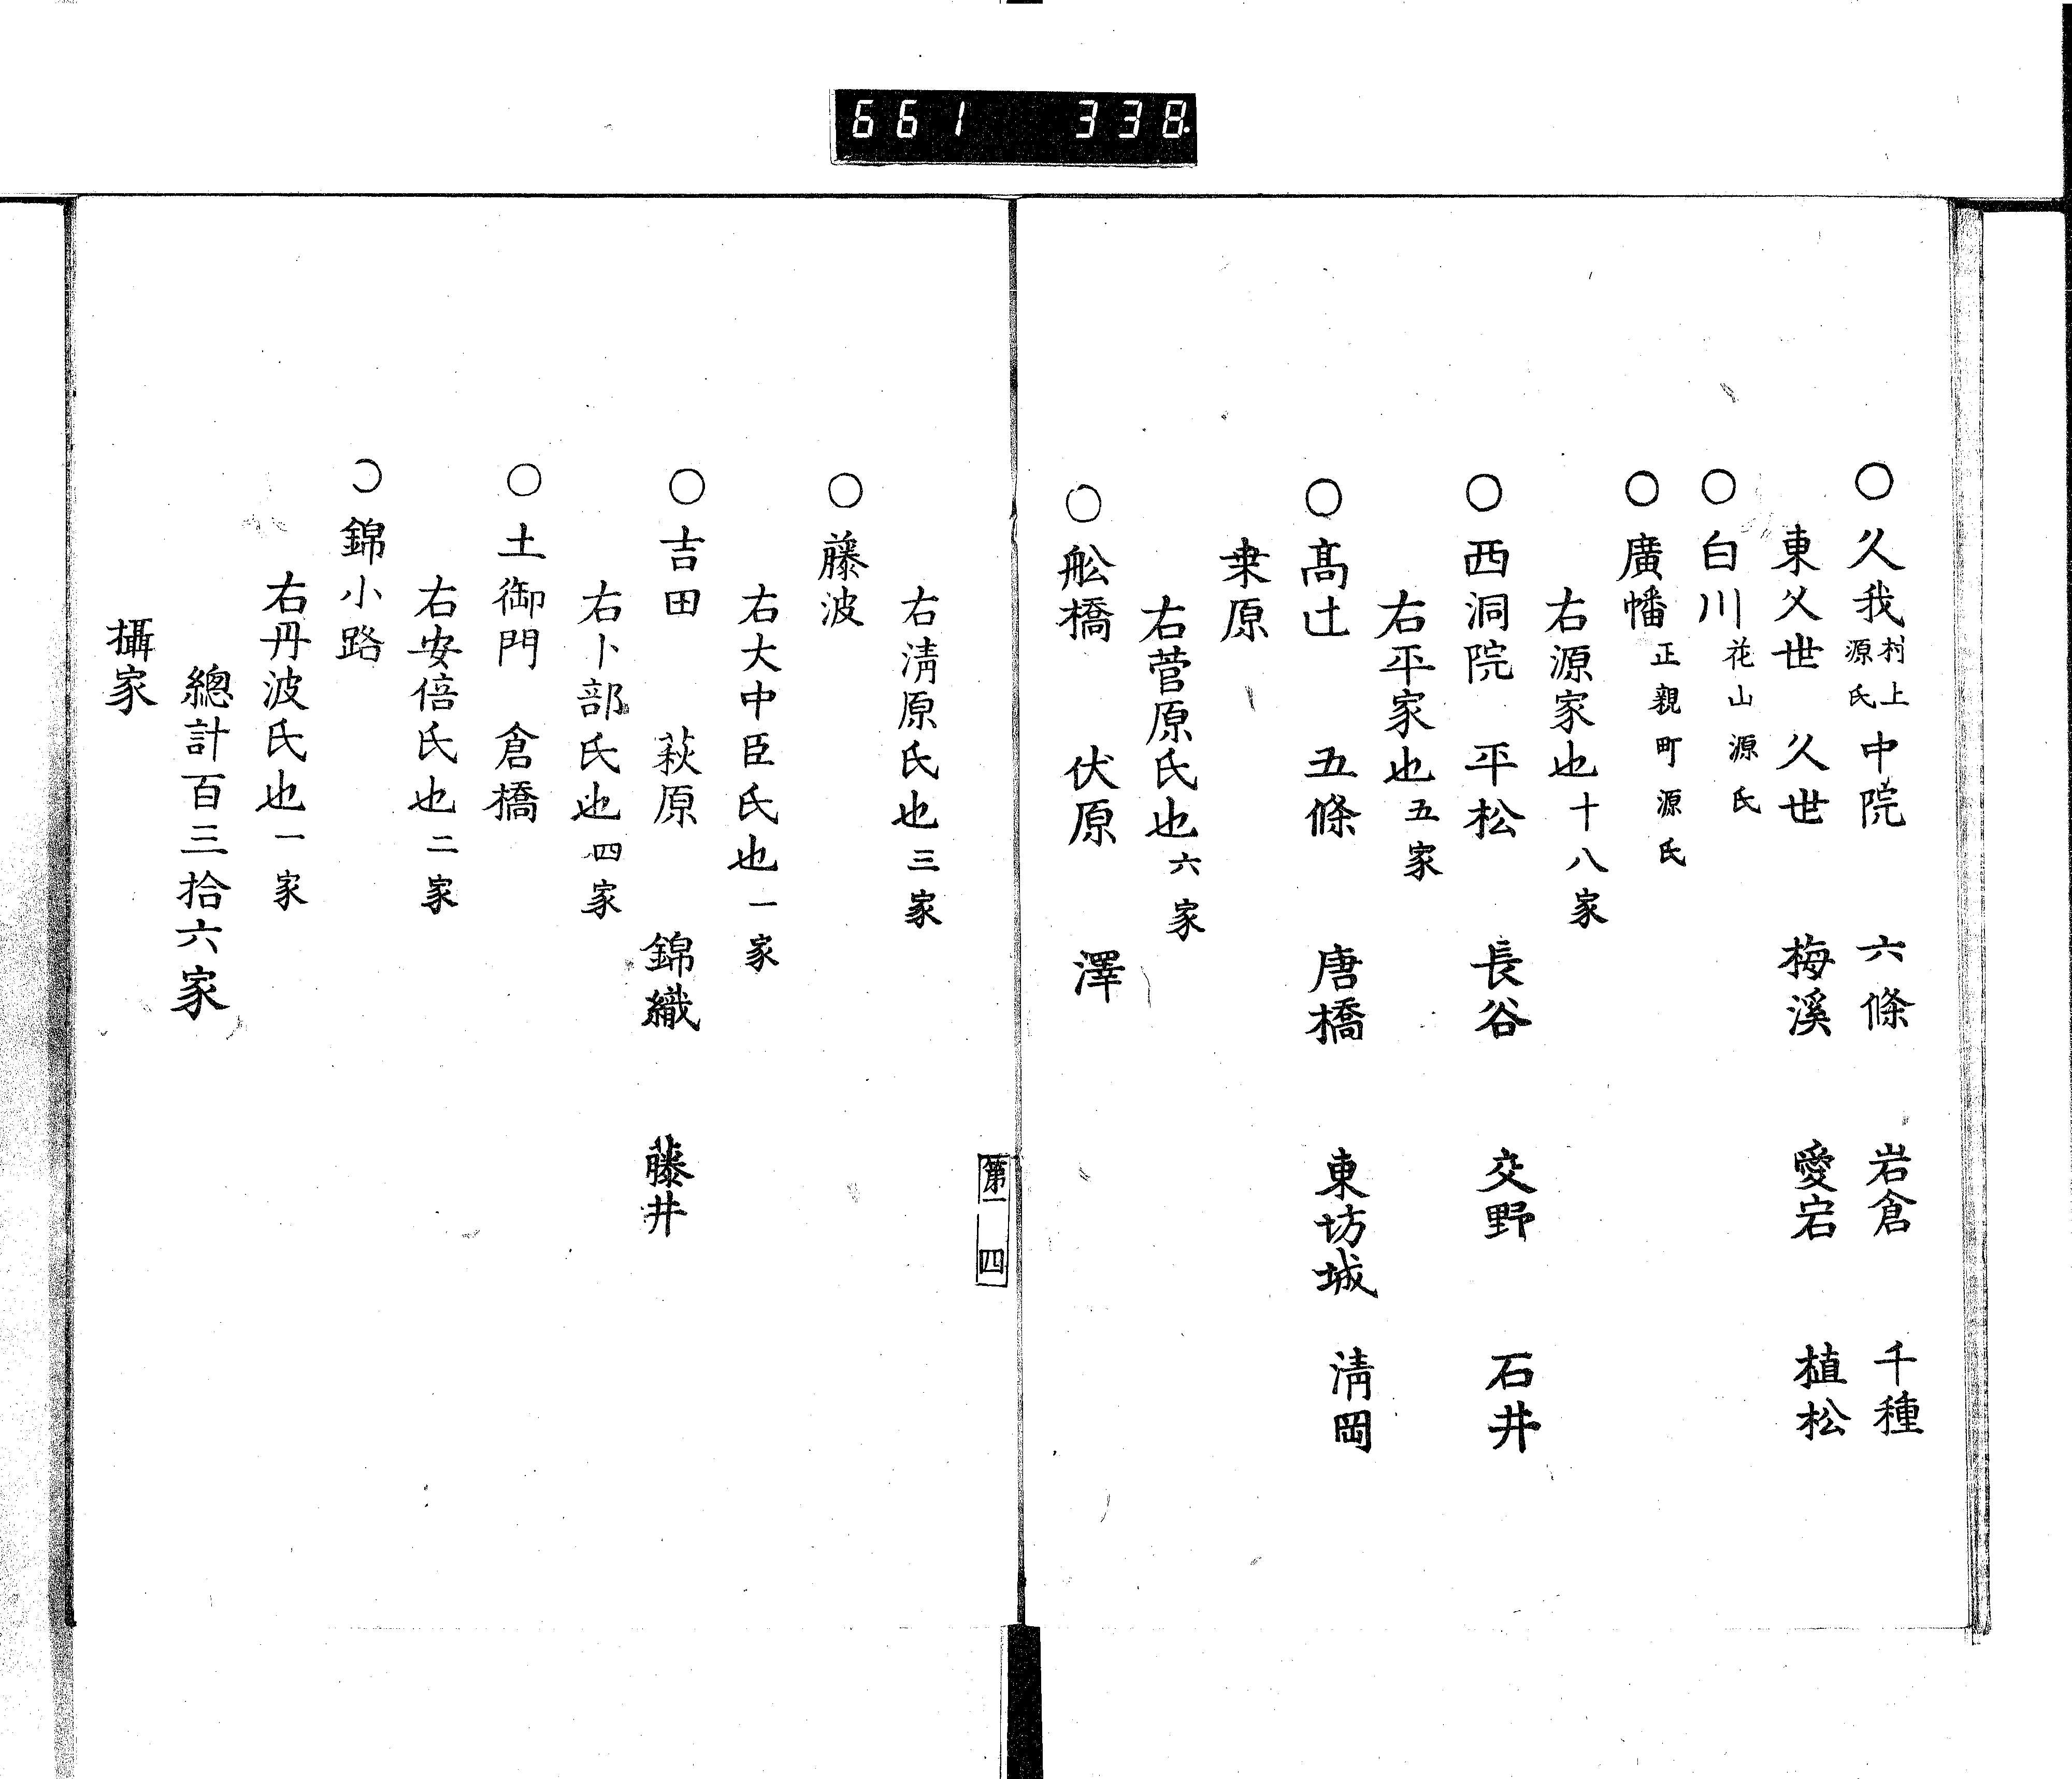 661 338
〇久我村上源氏 中院 六條 岩倉 千種
東久世 久世 梅溪 愛宕 植松
〇白川花山源氏
〇廣幡正親町源氏
右源家也十八家
〇西洞院 平松 長谷 交野 石井
右平家也五家
〇髙辻 五條 唐橋 東坊城 淸岡
桒原
右菅原氏也六家
〇舩橋 伏原 澤
右淸原氏也三家
〇藤波
右大中臣氏也一家
〇吉田 萩原 錦織 藤井
右卜部氏也四家
〇土御門 倉橋
右安倍氏也二家
〇錦小路
右丹波氏也一家
總計百三拾六家
攝家
第一 四